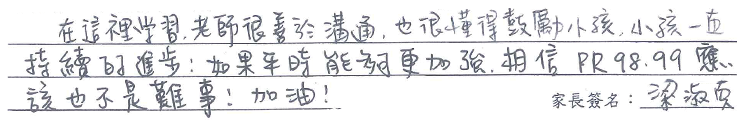 在這裡學習,老師很善於溝通,也很懂得鼓勵小孩,小孩一直
持續的進步!如果平時能夠更加強,相信 PR 98.99 應
該也不是難事!加油! 家長簽名:梁淑貞